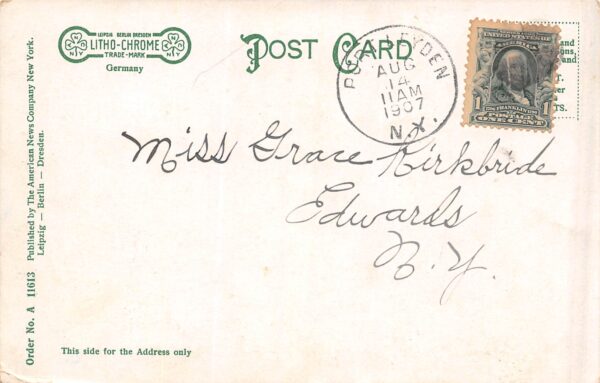 LEIPZIG BERLIN DRESDEN
LITHO-CHROME
TRADE-MARK
Germany
POST CARD
PORT LEYDEN
AUG
14
11AM
1907
N.Y.
and
ns,
and
T.
er
TS.
UNITED STATES OF
AMERICA
1 FRANKLIN 1
POSTAGE
ONE CENT
Miss Grace Kirkbride
Edwards
N.Y.
Order No. A 11613
Published by The American News Company New York.
Leipzig — Berlin — Dresden.
This side for the Address only